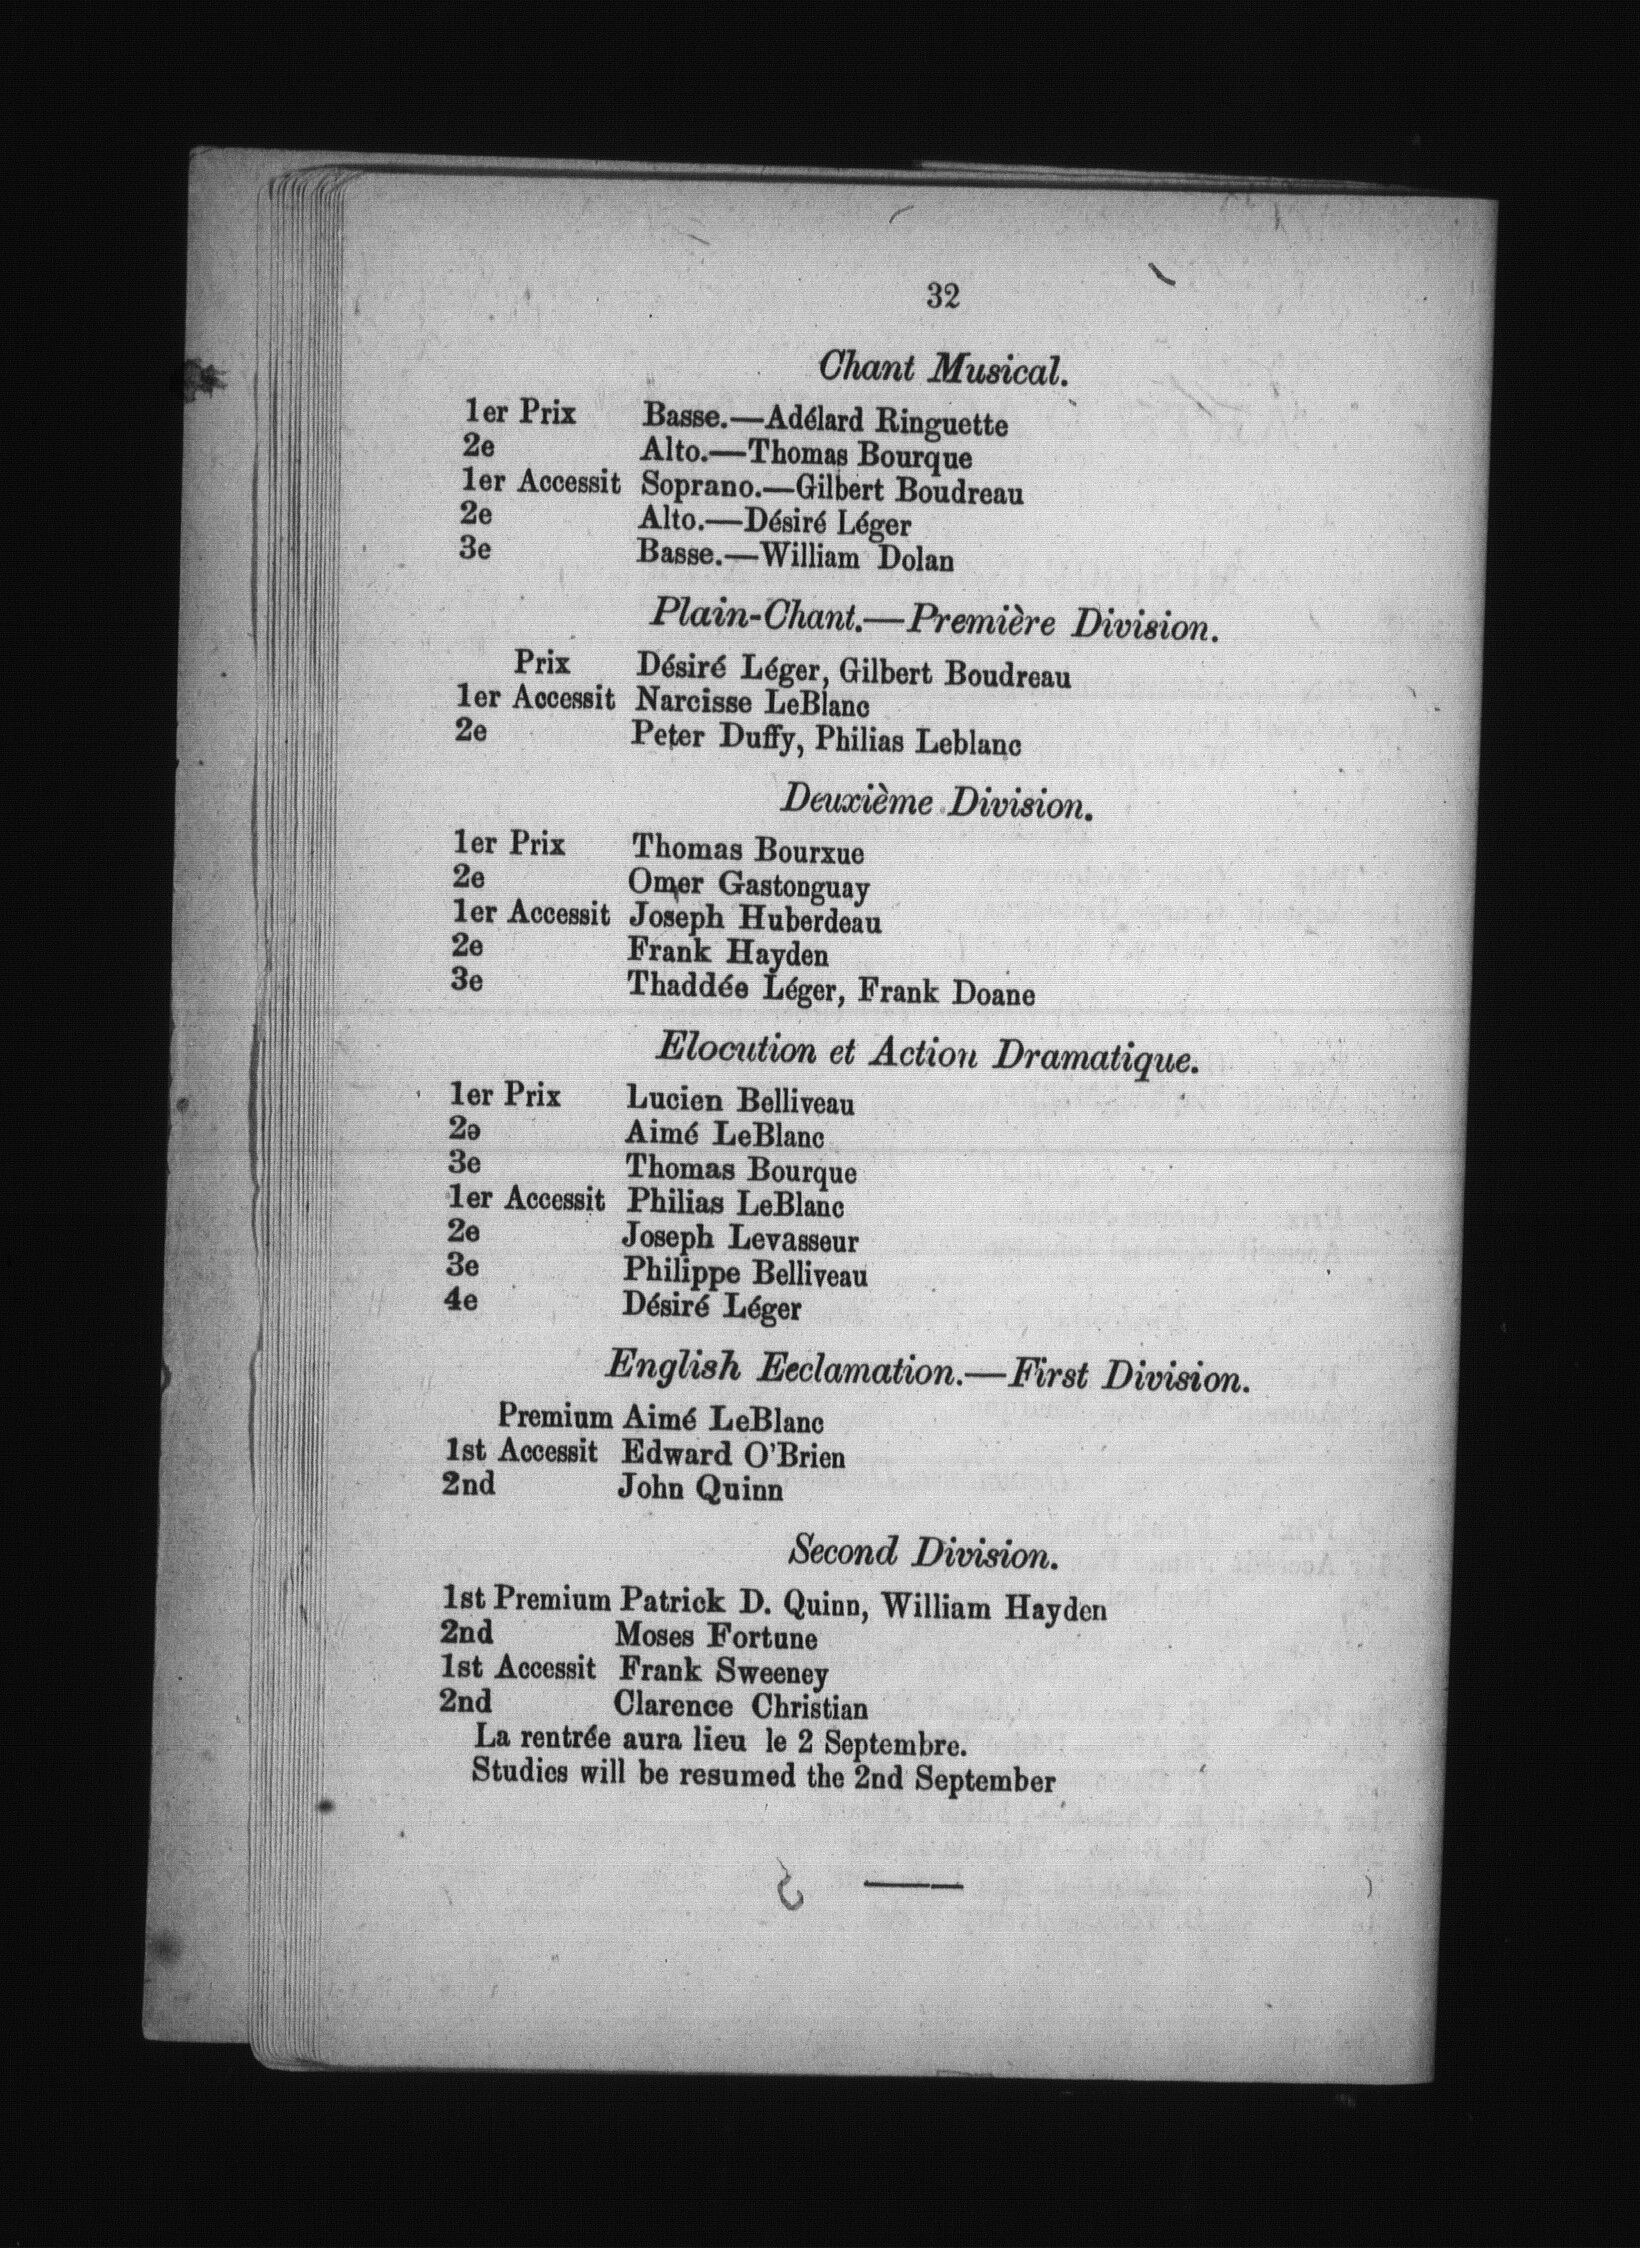 32
Chant Musical.
1er Prix Basse.—Adélard Ringuette
2e Alto.—Thomas Bourque
1er Accessit Soprano.—Gilbert Boudreau
2e Alto.—Désiré Léger
3e Basse.—William Dolan
Plain-Chant.—Première Division.
Prix Désiré Léger, Gilbert Boudreau
1er Accessit Narcisse LeBlanc
2e Peter Duffy, Philias Leblanc
Deuxième Division.
1er Prix Thomas Bourxue
2e Omer Gastonguay
1er Accessit Joseph Huberdeau
2e Frank Hayden
3e Thaddée Léger, Frank Doane
Elocution et Action Dramatique.
1er Prix Lucien Belliveau
2ə Aimé LeBlanc
3e Thomas Bourque
1er Accessit Philias LeBlanc
2e Joseph Levasseur
3e Philippe Belliveau
4e Désiré Léger
English Eeclamation.—First Division.
Premium Aimé LeBlanc
1st Accessit Edward O'Brien
2nd John Quinn
Second Division.
1st Premium Patrick D. Quinn, William Hayden
2nd Moses Fortune
1st Accessit Frank Sweeney
2nd Clarence Christian
La rentrée aura lieu le 2 Septembre.
Studies will be resumed the 2nd September